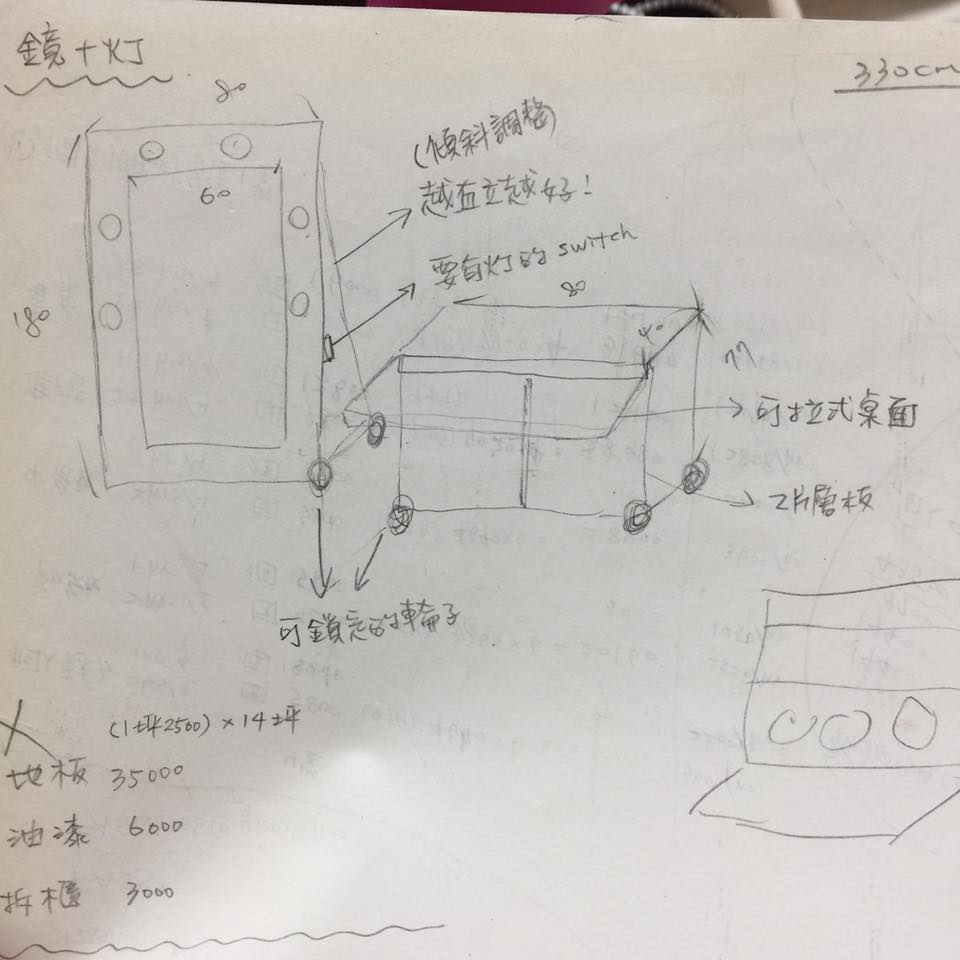 鏡+灯
330cm
80
60
180
(傾斜調整)
越直立越好!
要有灯的 switch
80
40
77
可拉式桌面
2片層板
可鎖定的輪子
(1坪2500) × 14坪
地板 35000
油漆 6000
拆櫃 3000